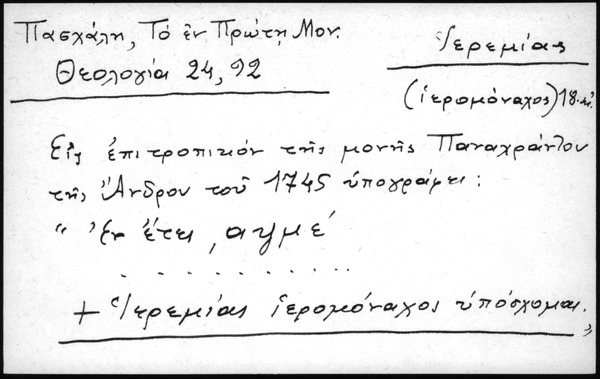 Πασχάλη, Τὸ ἐν Πρώτῃ Μον.
Θεολογία 24, 92
Ἱερεμίας
(ἱερομόναχος) 18. αἰ.
Εἰς ἐπιτροπικόν τῆς μονῆς Παναχράντου
τῆς Ἄνδρου τοῦ 1745 ὑπογράφει:
“ Ἐν ἔτει ͵αψμέ
. . . . . . . . . .
+ Ἱερεμίας ἱερομόναχος ὑπόσχομαι. ”